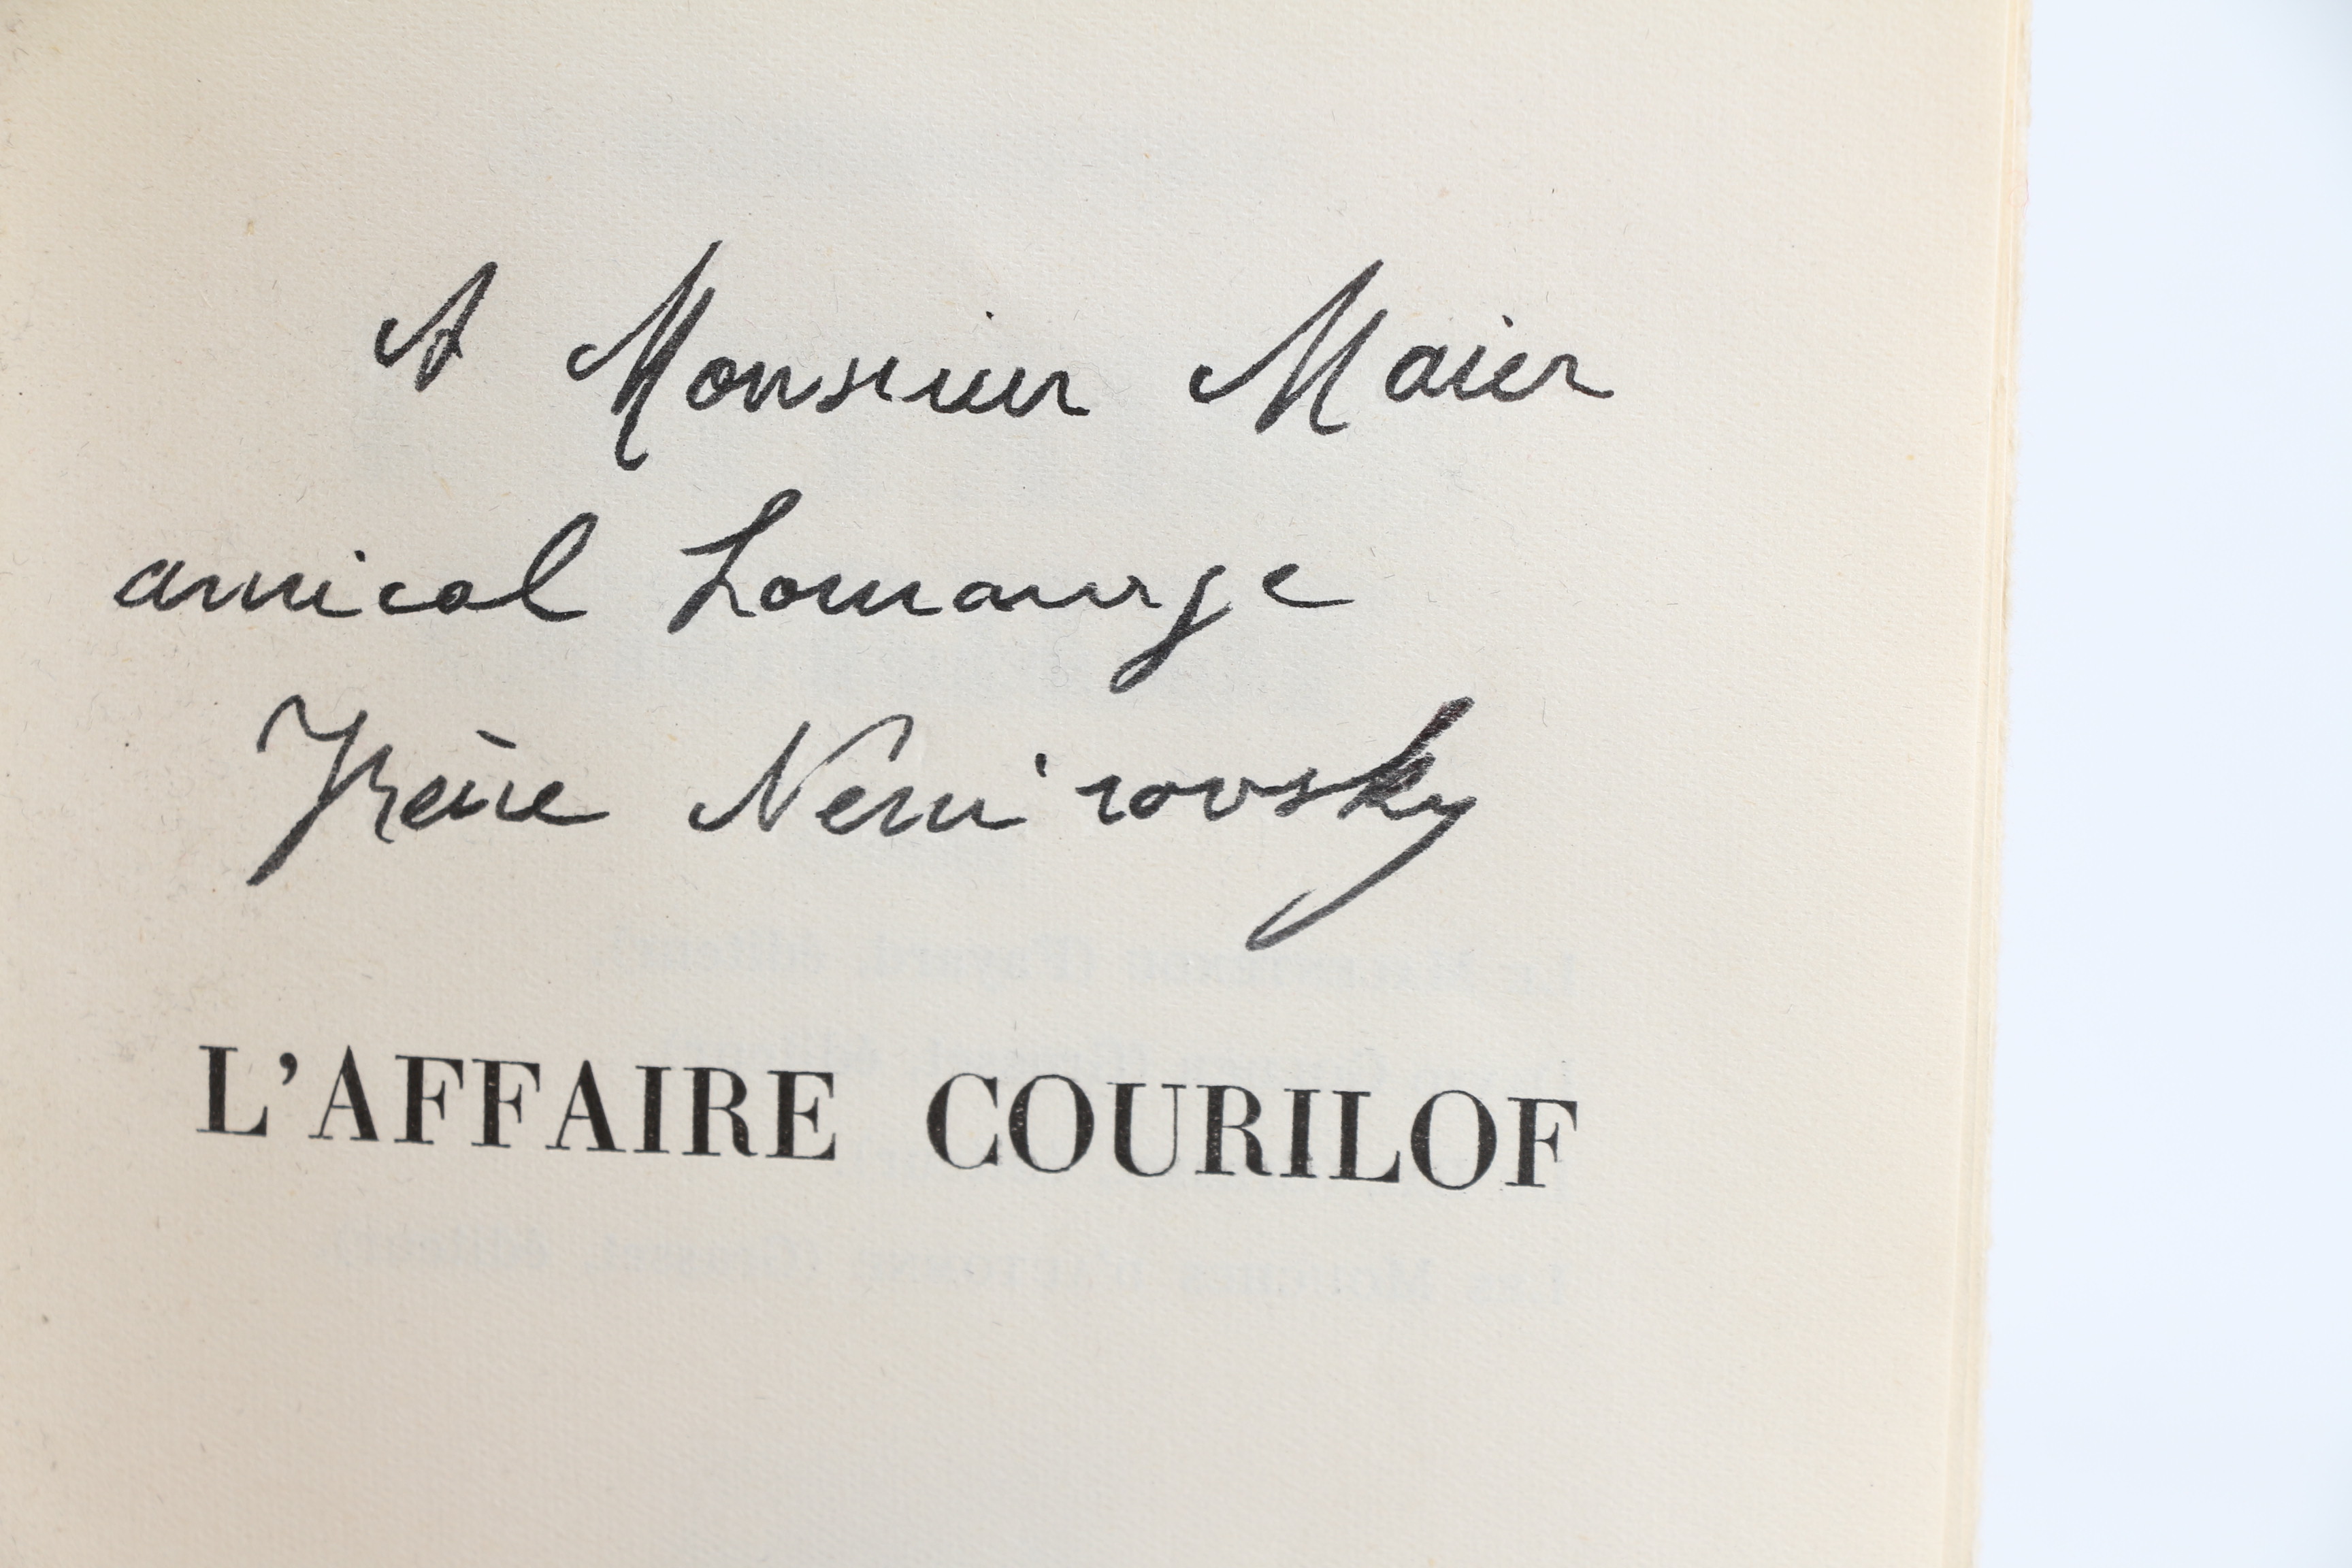 A Monsieur Maier
amical hommage
Irène Nemirovsky
L'AFFAIRE COURILOF